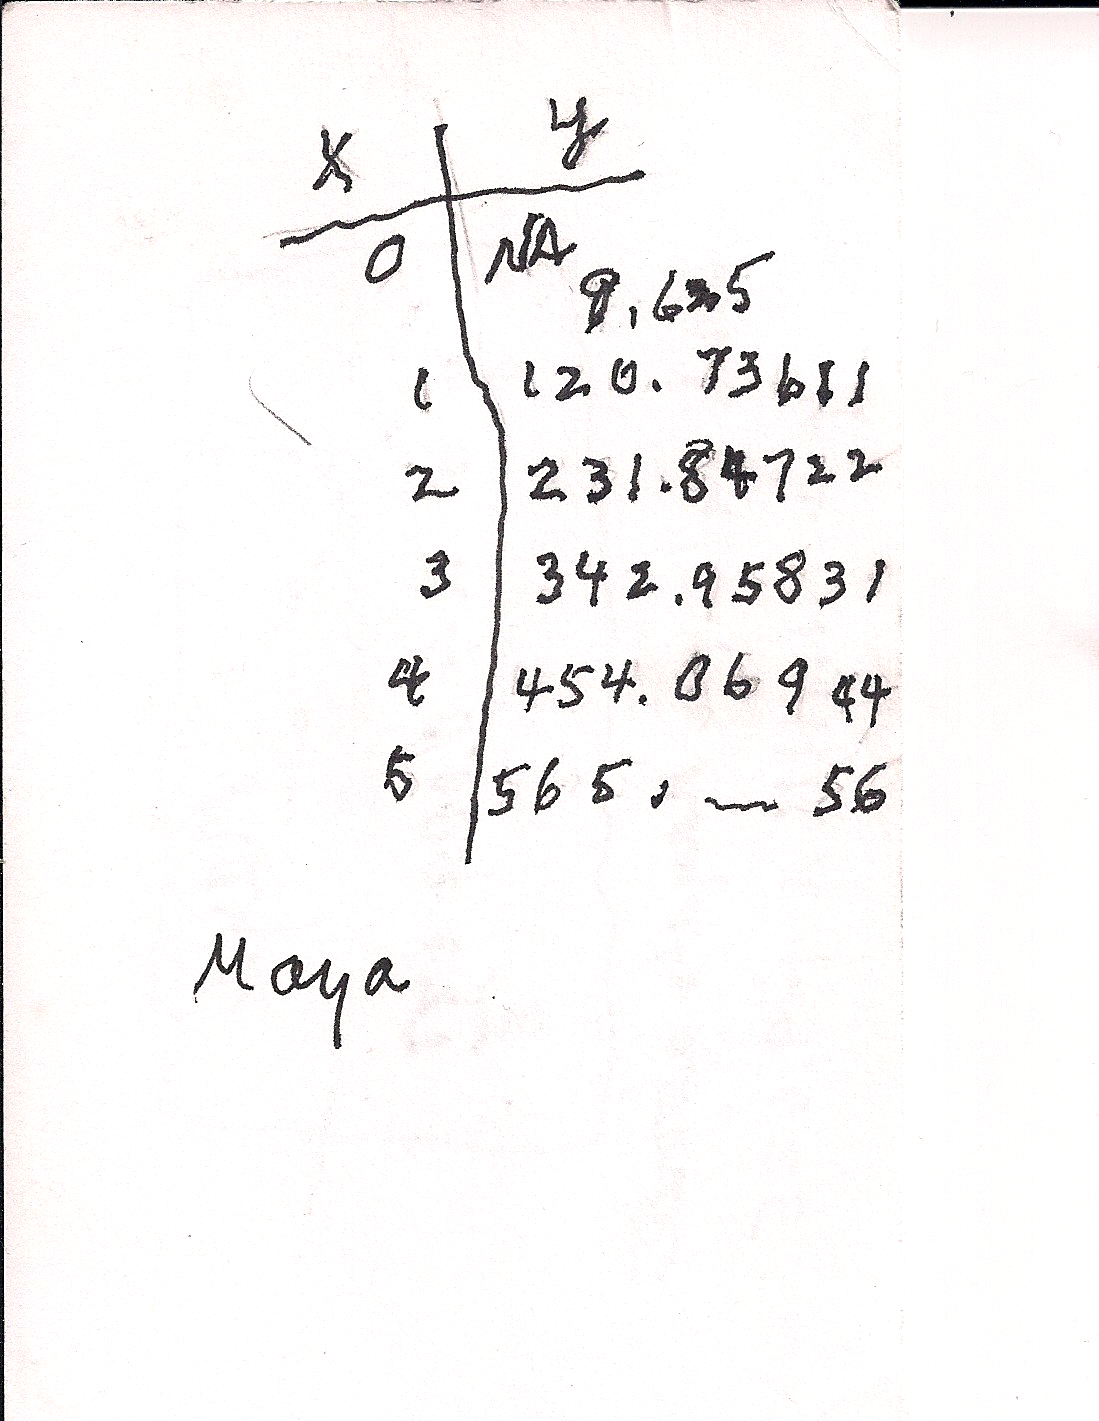 X y
0 NA
9.625
1 120.73611
2 231.84722
3 342.95831
4 454.06944
5 565. — 56
Maya